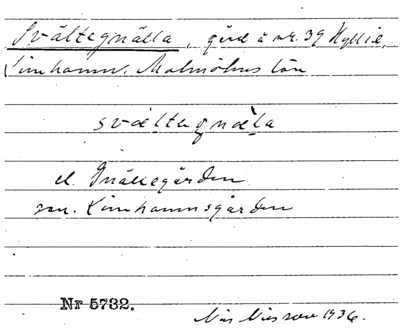 Svältegnälla, gård å nr. 39 Hyllie,
Limhamn. Malmöhus län
svältagnäla
el. Gnällegården
sen. Limhamnsgården
Nr 5732.
Nils Nilsson 1936.